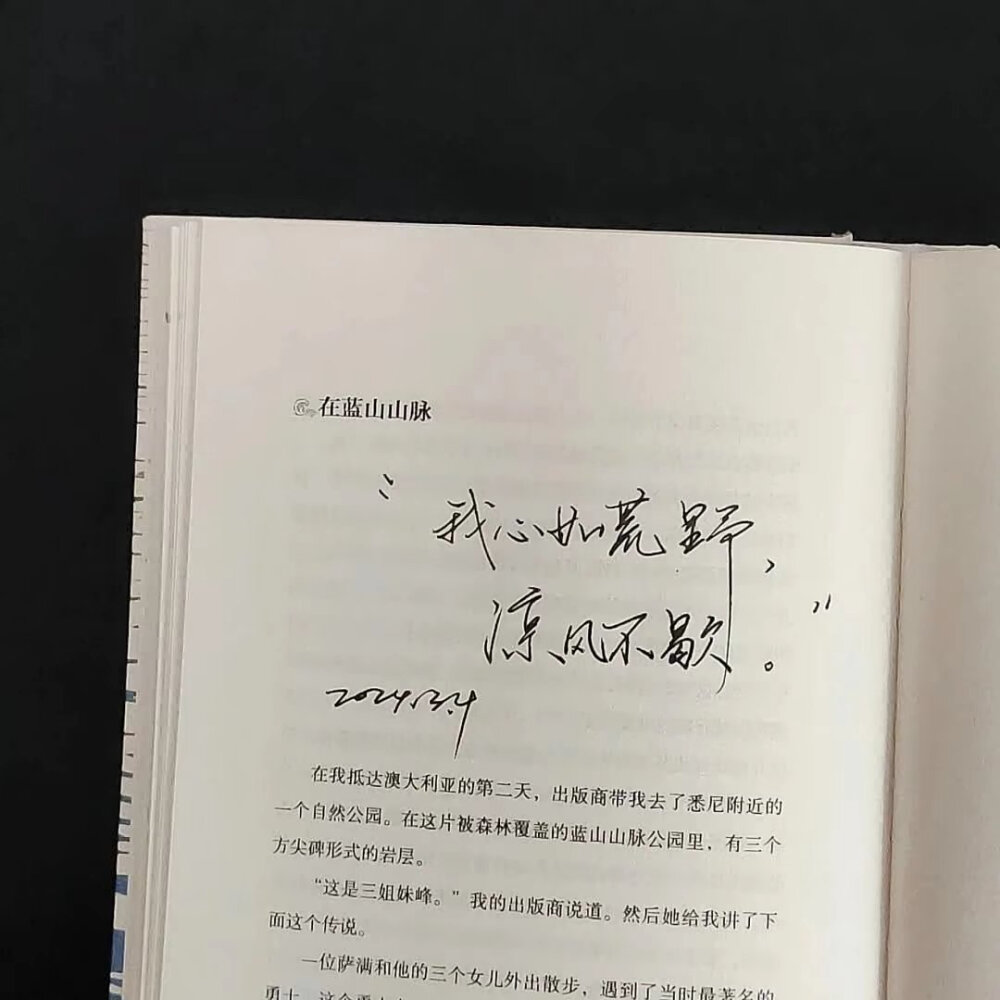 在蓝山山脉
“我心如荒野，
凉风不歇。”
2024.3.4
在我抵达澳大利亚的第二天，出版商带我去了悉尼附近的
一个自然公园。在这片被森林覆盖的蓝山山脉公园里，有三个
方尖碑形式的岩层。
“这是三姐妹峰。”我的出版商说道。然后她给我讲了下
面这个传说。
一位萨满和他的三个女儿外出散步，遇到了当时最著名的
勇士。这个勇士